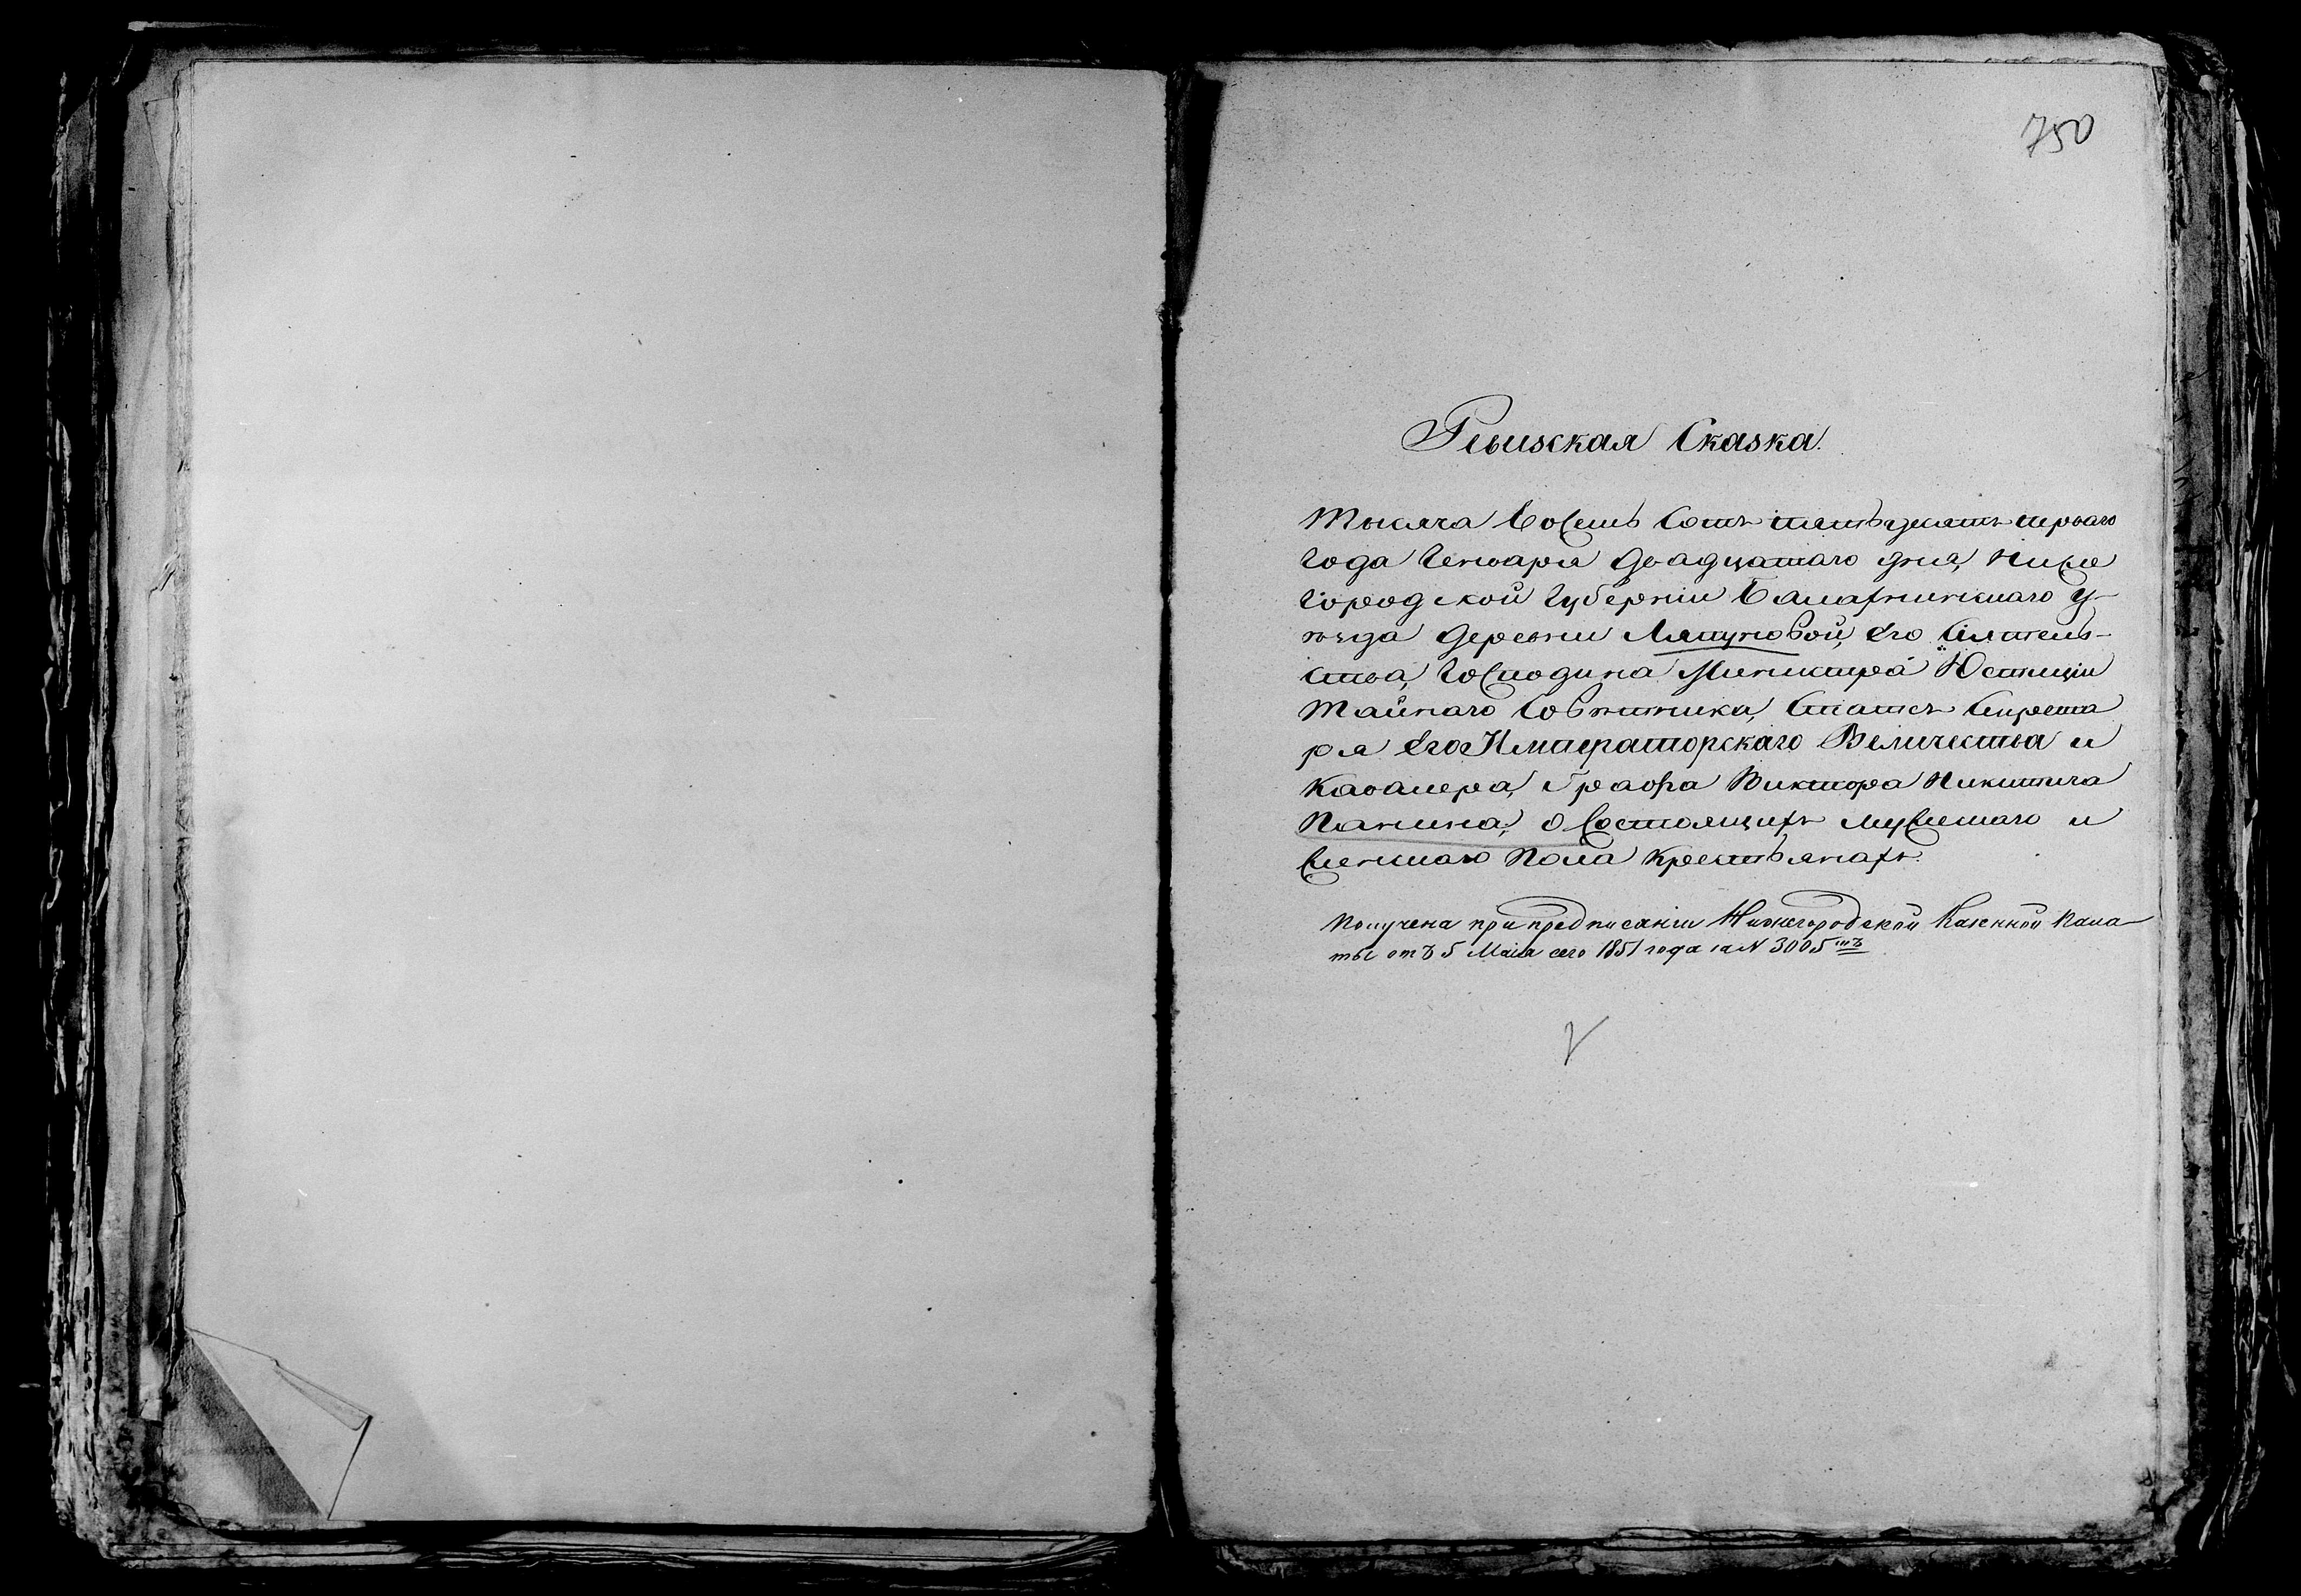 750
Ревизская Сказка.
Тысяча Восемь Сотъ пятьдесятъ перваго
Года Генваря двадцатаго дня, Ниже
Городской Губерніи Балахнинскаго У-
ѣзда Деревни Ляпуновой, Его Сіятель-
ства, Господина Министра Юстиціи
Тайнаго Совѣтника, Статсъ Секрета
ря Его Императорскаго Величества и
Кавалера, Графа Виктора Никитича
Панина, о Состоящихъ мужескаго и
женскаго Пола Крестьянахъ.
Получена при предписаніи Нижегородской Казенной Пала
ты отъ 5 Маія сего 1851 года за N 3005мъ